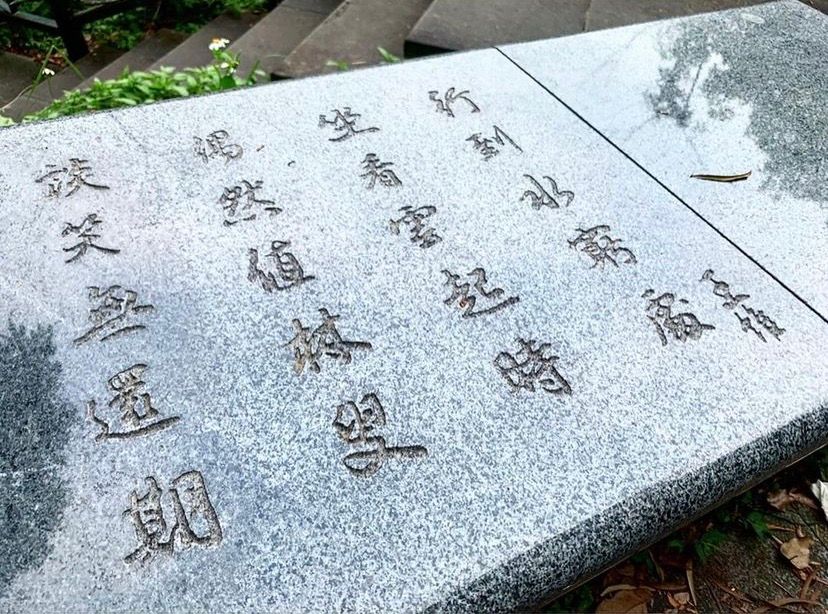 王維
行到水窮處
坐看雲起時
偶然值林叟
談笑無還期